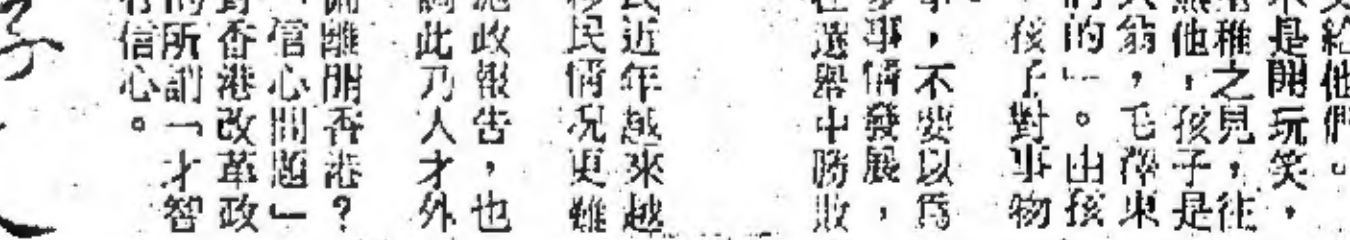 給他們。
不是開玩笑，
雅之見，往
他，孩子是
翁，毛澤東
的」。由孩
孩子對事物
，不要以爲
事情發展，
在選舉中勝敗
民近年越來越
移民情況更難
政報告，也
此乃人才外
離開香港？
「信心問題」
對香港改革政
的所謂「才智
有信心。